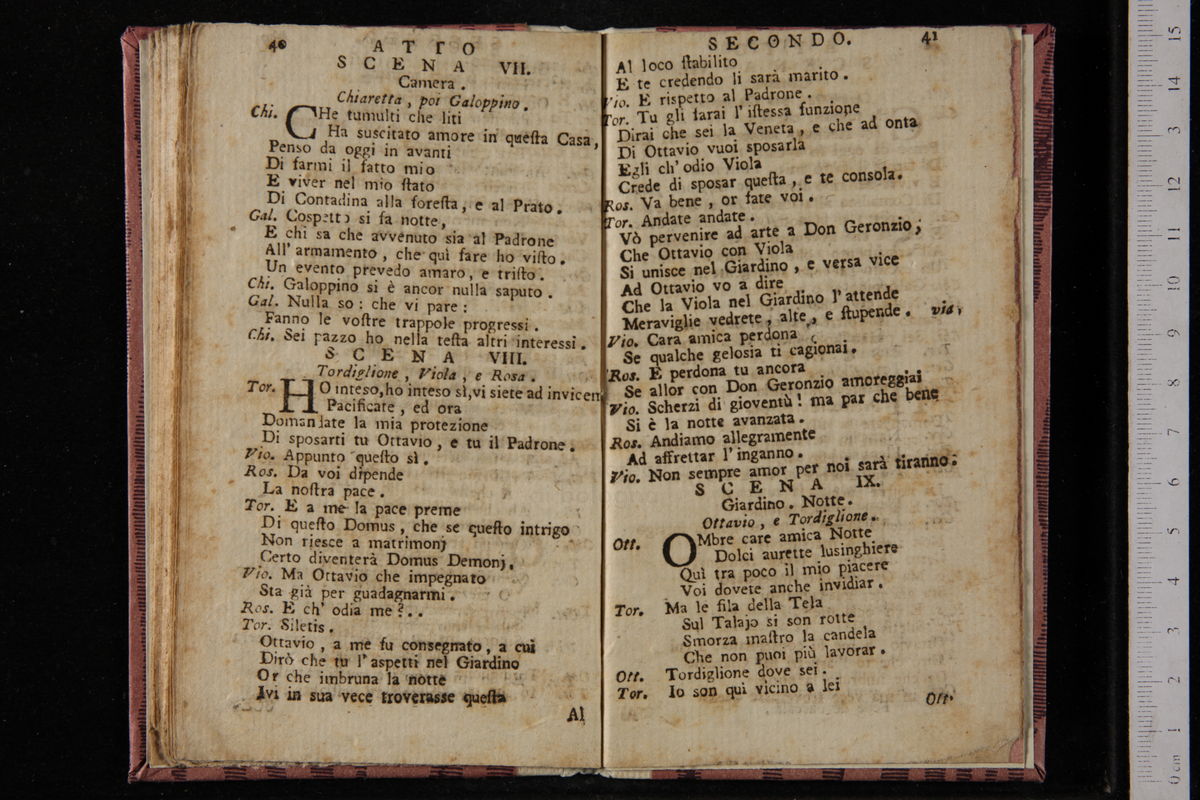 40 ATTO
SCENA VII.
Camera.
Chiaretta, poi Galoppino.
Chi. CHe tumulti che liti
Ha suscitato amore in questa Casa,
Penso da oggi in avanti
Di farmi il fatto mio
E viver nel mio stato
Di Contadina alla foresta, e al Prato.
Gal. Cospetto si fa notte,
E chi sa che avvenuto sia al Padrone
All' armamento, che quì fare ho visto.
Un evento prevedo amaro, e tristo.
Chi. Galoppino si è ancor nulla saputo.
Gal. Nulla so: che vi pare:
Fanno le vostre trappole progressi.
Chi. Sei pazzo ho nella testa altri interessi.
SCENA VIII.
Tordiglione, Viola, e Rosa.
Tor. HO inteso, ho inteso sì, vi siete ad invicem
Pacificate, ed ora
Domandate la mia protezione
Di sposarti tu Ottavio, e tu il Padrone.
Vio. Appunto questo sì.
Ros. Da voi dipende
La nostra pace.
Tor. E a me la pace preme
Di questo Domus, che se questo intrigo
Non riesce a matrimonj
Certo diventerà Domus Demonj.
Vio. Ma Ottavio che impegnato
Sta già per guadagnarmi.
Ros. E ch' odia me?..
Tor. Siletis.
Ottavio, a me fu consegnato, a cui
Dirò che tu l'aspetti nel Giardino
Or che imbruna la notte
Ivi in sua vece troverasse questa
Al
SECONDO. 41
Al loco stabilito
E te credendo li sarà marito.
Vio. E rispetto al Padrone.
Tor. Tu gli farai l'istessa funzione
Dirai che sei la Veneta, e che ad onta
Di Ottavio vuoi sposarla
Egli ch' odio Viola
Crede di sposar questa, e te consola.
Ros. Va bene, or fate voi.
Tor. Andate andate.
Vò pervenire ad arte a Don Geronzio,
Che Ottavio con Viola
Si unisce nel Giardino, e versa vice
Ad Ottavio vo a dire
Che la Viola nel Giardino l'attende
Meraviglie vedrete, alte, e stupende. via,
Vio. Cara amica perdona
Se qualche gelosia ti cagionai.
Ros. E perdona tu ancora
Se allor con Don Geronzio amoreggiai
Vio. Scherzi di gioventù! ma par che bene
Si è la notte avanzata.
Ros. Andiamo allegramente
Ad affrettar l'inganno.
Vio. Non sempre amor per noi sarà tiranno.
SCENA IX.
Giardino. Notte.
Ottavio, e Tordiglione.
Ott. OMbre care amica Notte
Dolci aurette lusinghiere
Quì tra poco il mio piacere
Voi dovete anche invidiar.
Tor. Ma le fila della Tela
Sul Talajo si son rotte
Smorza mastro la candela
Che non puoi più lavorar.
Ott. Tordiglione dove sei.
Tor. Io son quì vicino a lei
Ott.
0 cm 1 2 3 4 5 6 7 8 9 10 11 12 13 14 15